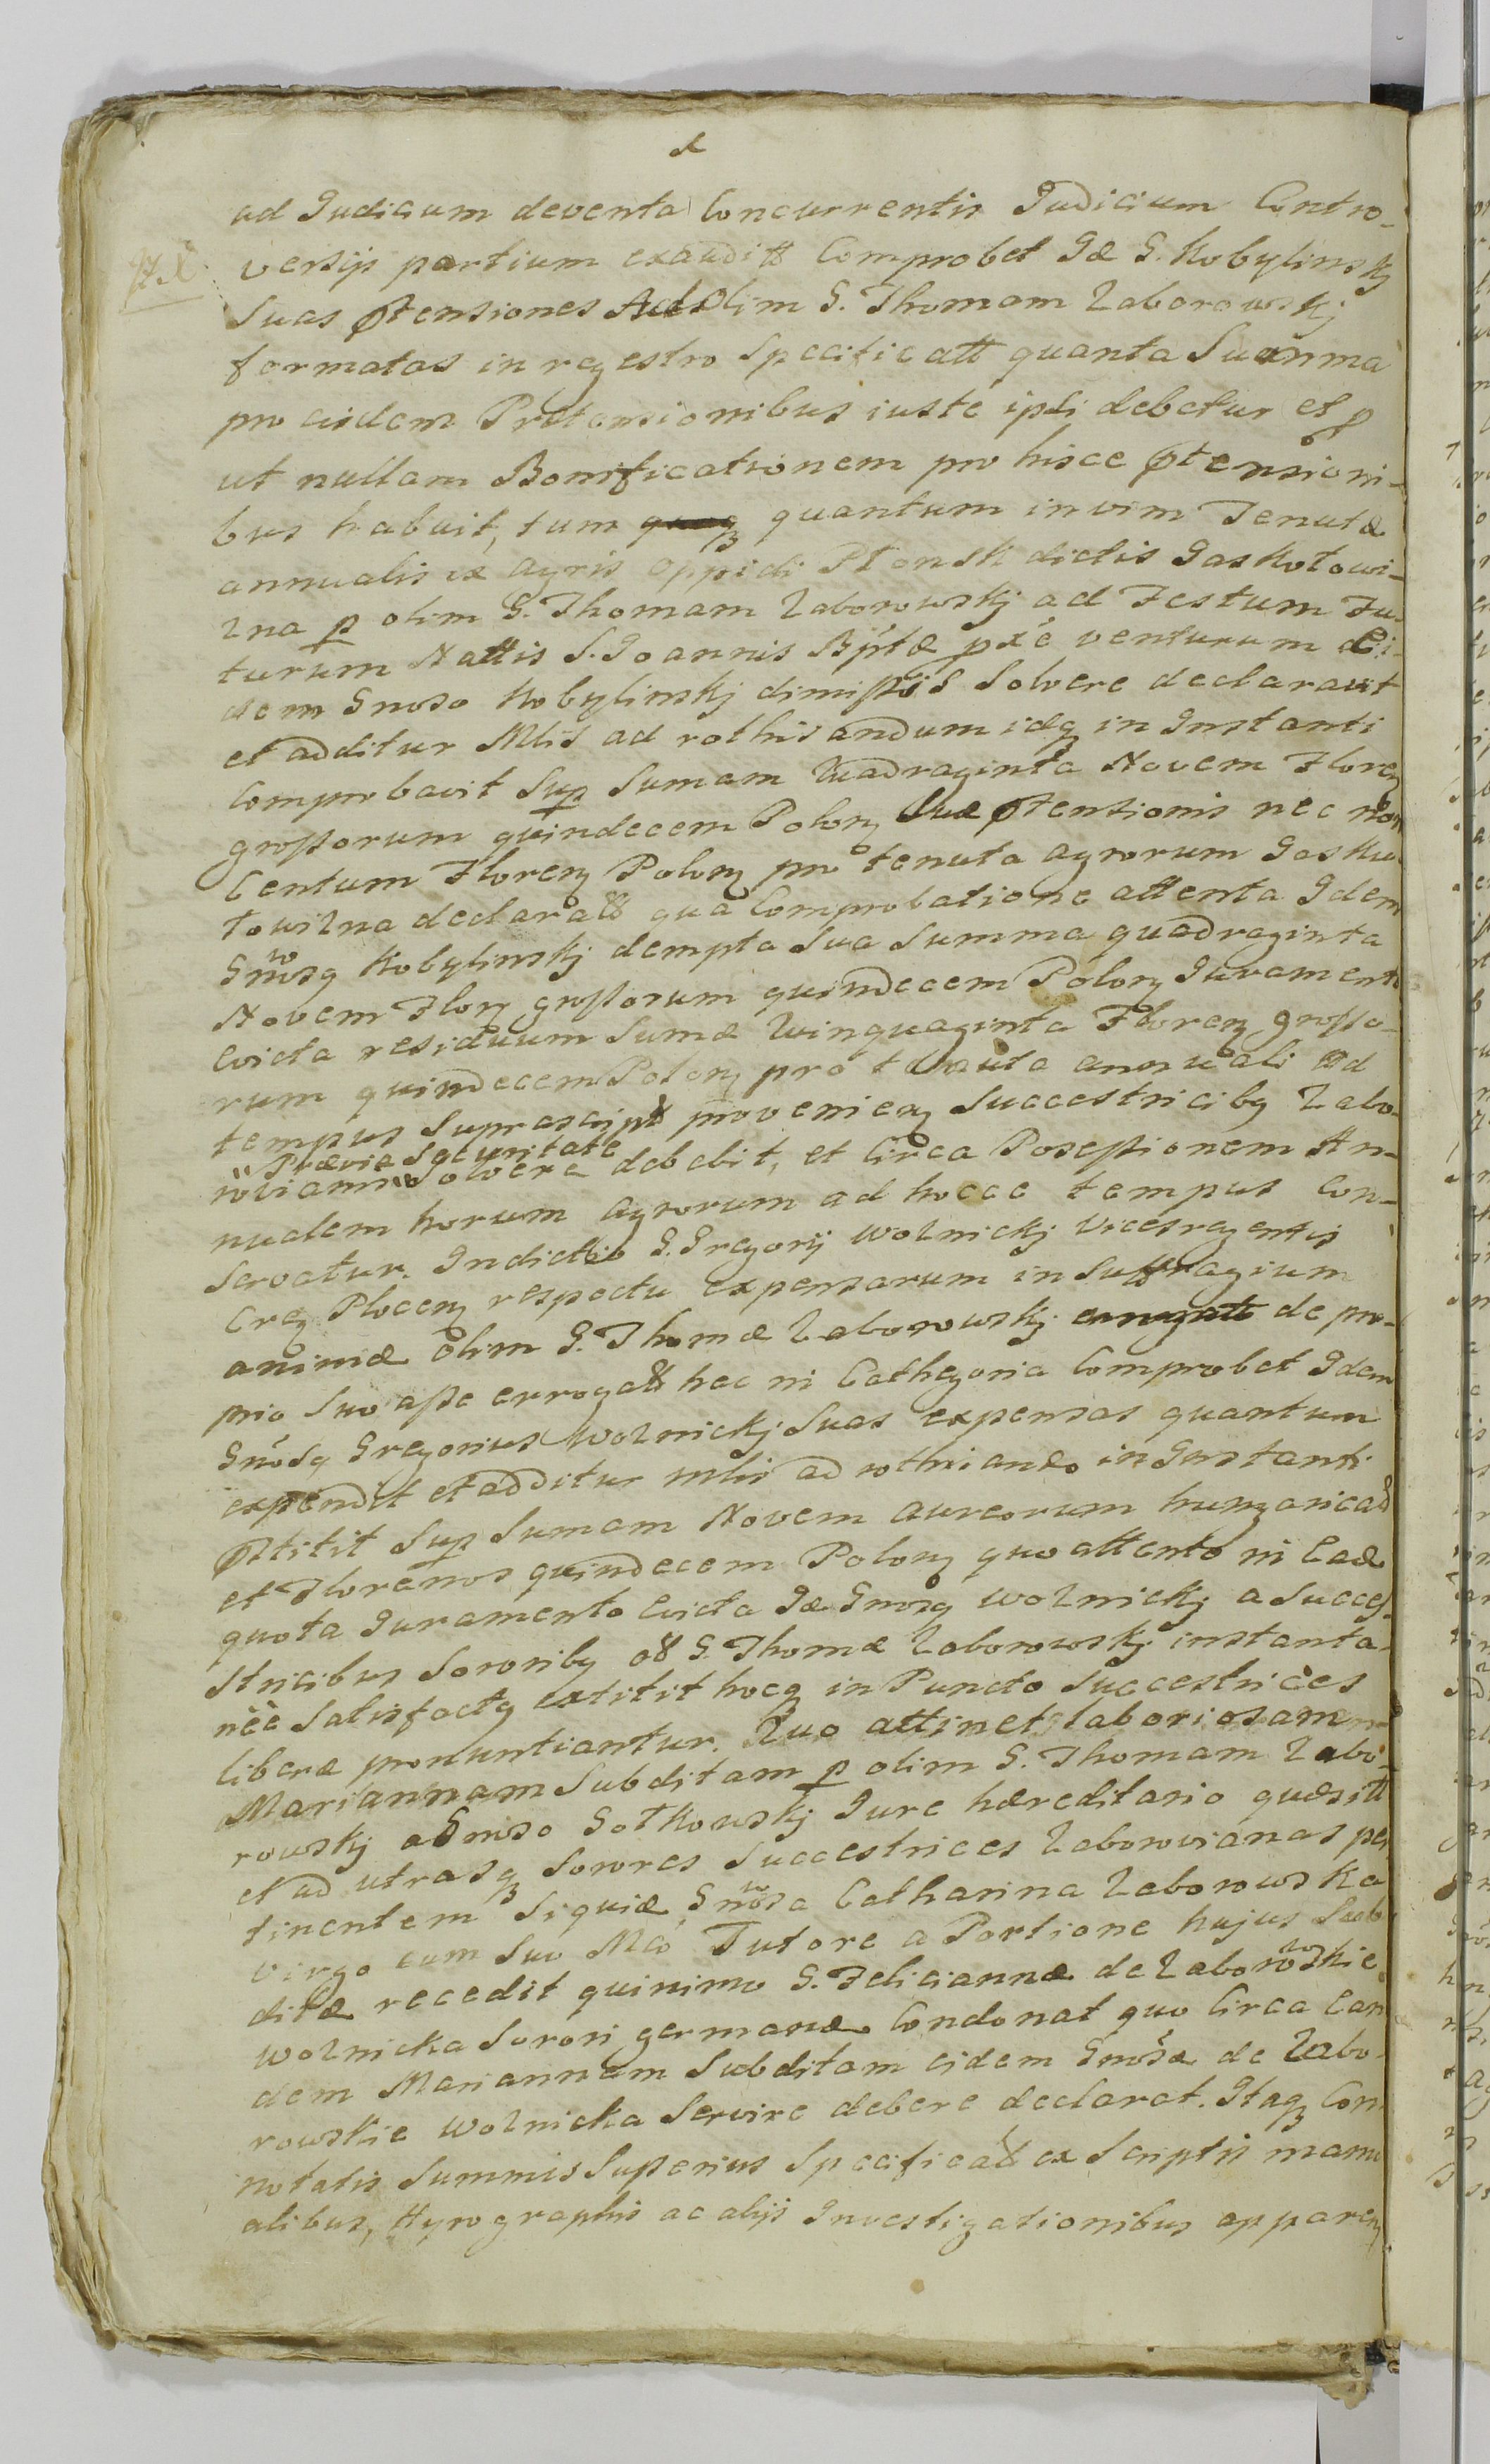 ad Judicium deventa Concurrentis Judicium Contro-
versijs partium exauditt Comprobet Jdæ G. Kobylinskj
Suas ptensiones Ad Olim G. Thomam Zaborowskj
formatas in regestro Specificatt quanta Summa
pro eisdem Prætensionibus iuste ipsi debetur et
ut nullam Bonificationem pro hisce ptensioni-
bus habuit, tum quantum in vim Tenutæ
annualis ex agris oppidi Płonsk dictis Jaskołowi-
zna p olim G. Thomam Zaborowskj ad Festum Fu-
turum Nattis S. Joannis Bptæ pxe venturum Ei-
dem Gnoso Kobylinskj dimissis Solvere declaravit
et additur Mlis ad rothisandum idq in Instanti
Comprobavit Sup Sumam Quadraginta Novem Floren
grossorum quindecem Polon Suæ ptensionis nec non
Centum Floren Polon pro tenuta agrorum Jasko-
towizna declaratt qua Comprobatione attenta Idem
Gnosq Kobylinskj dempta Sua Summa quadraginta
Novem Flon grossorum quindecem Polon Juramento
Evicta residuum Sumæ Quinquaginta Floren grosso-
rum quindecem Polon pro tenuta annuali ad
tempus Suprascript provenien Succestricibq Zabo-
Prævia Securitate
rovianis Solvere debebit, et Circa Posessionem An-
nualem horum agrorum ad hocce tempus Con-
Servatur. G. Gregorij Woznickj Vicesregentis
Cren Plocen respectu expensarum in Suffragium
animæ olim G. Thomæ Zaborowskj de pro-
prio Suo asse errogatt hac in Cathegoria Comprobet Idem
Gnosq Gregorius Woznickj Suas expensas quantum
expendit et additur mlis ad rothisando in Instanti
pstitit Sup Sumam Novem aureorum hungaricad
et Florenos quindecem Polon quo attento in Eadæ
quota Juramento Evicta Jdæ Gnosq Woznickj a Succes-
Stricibus Sororibq olim G. Thomæ Zaborowskj instanta-
nèe Satisfactq extitit hocq in Puncto Succestrices
liberæ pronuntiantur. Quo attinet laboriosam
Mariannam Subditam p olim G. Thomam Zabo-
rowskj a Gnoso Gotkowskj Jure hæreditario quæsitt
et ad utrasq Sorores Succestrices Zaborovianas per
tinentem Siquidæ Gnosa Catharina Zaborowska
Virgo cum Suo Mco Tutore a Portione hujus Sub
ditæ recedit quinimo G. Feliciannæ de Zaborowskie
Woznicka Sorori germanæ Condonat quo Circa Ean
dem Mariannam Subditam eidem Gnosæ de Zabo-
rowskie Woznicka Servire debere declarat. Itaq Con
notatis Summis Superius Specificatt ex Scriptis manu
alibus, Hyrographis ac alijs Investigationibus apparen